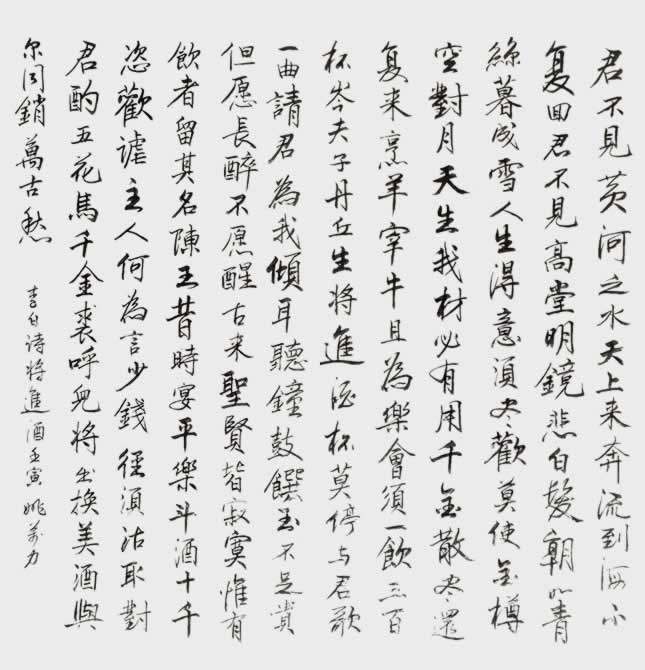 君不见黄河之水天上来奔流到海不
复回君不见高堂明镜悲白髮朝如青
絲暮成雪人生得意須尽歡莫使金樽
空對月天生我材必有用千金散尽還
复来烹羊宰牛且為樂會須一飲三百
杯岑夫子丹丘生将進酒杯莫停与君歌
一曲請君為我傾耳聽鐘鼓饌玉不足貴
但愿長醉不愿醒古来聖賢皆寂寞惟有
飲者留其名陳王昔時宴平樂斗酒十千
恣歡謔主人何為言少錢径須沽取對
君酌五花馬千金裘呼兒将出换美酒與
尔同銷萬古愁
李白诗将進酒壬寅姚万力